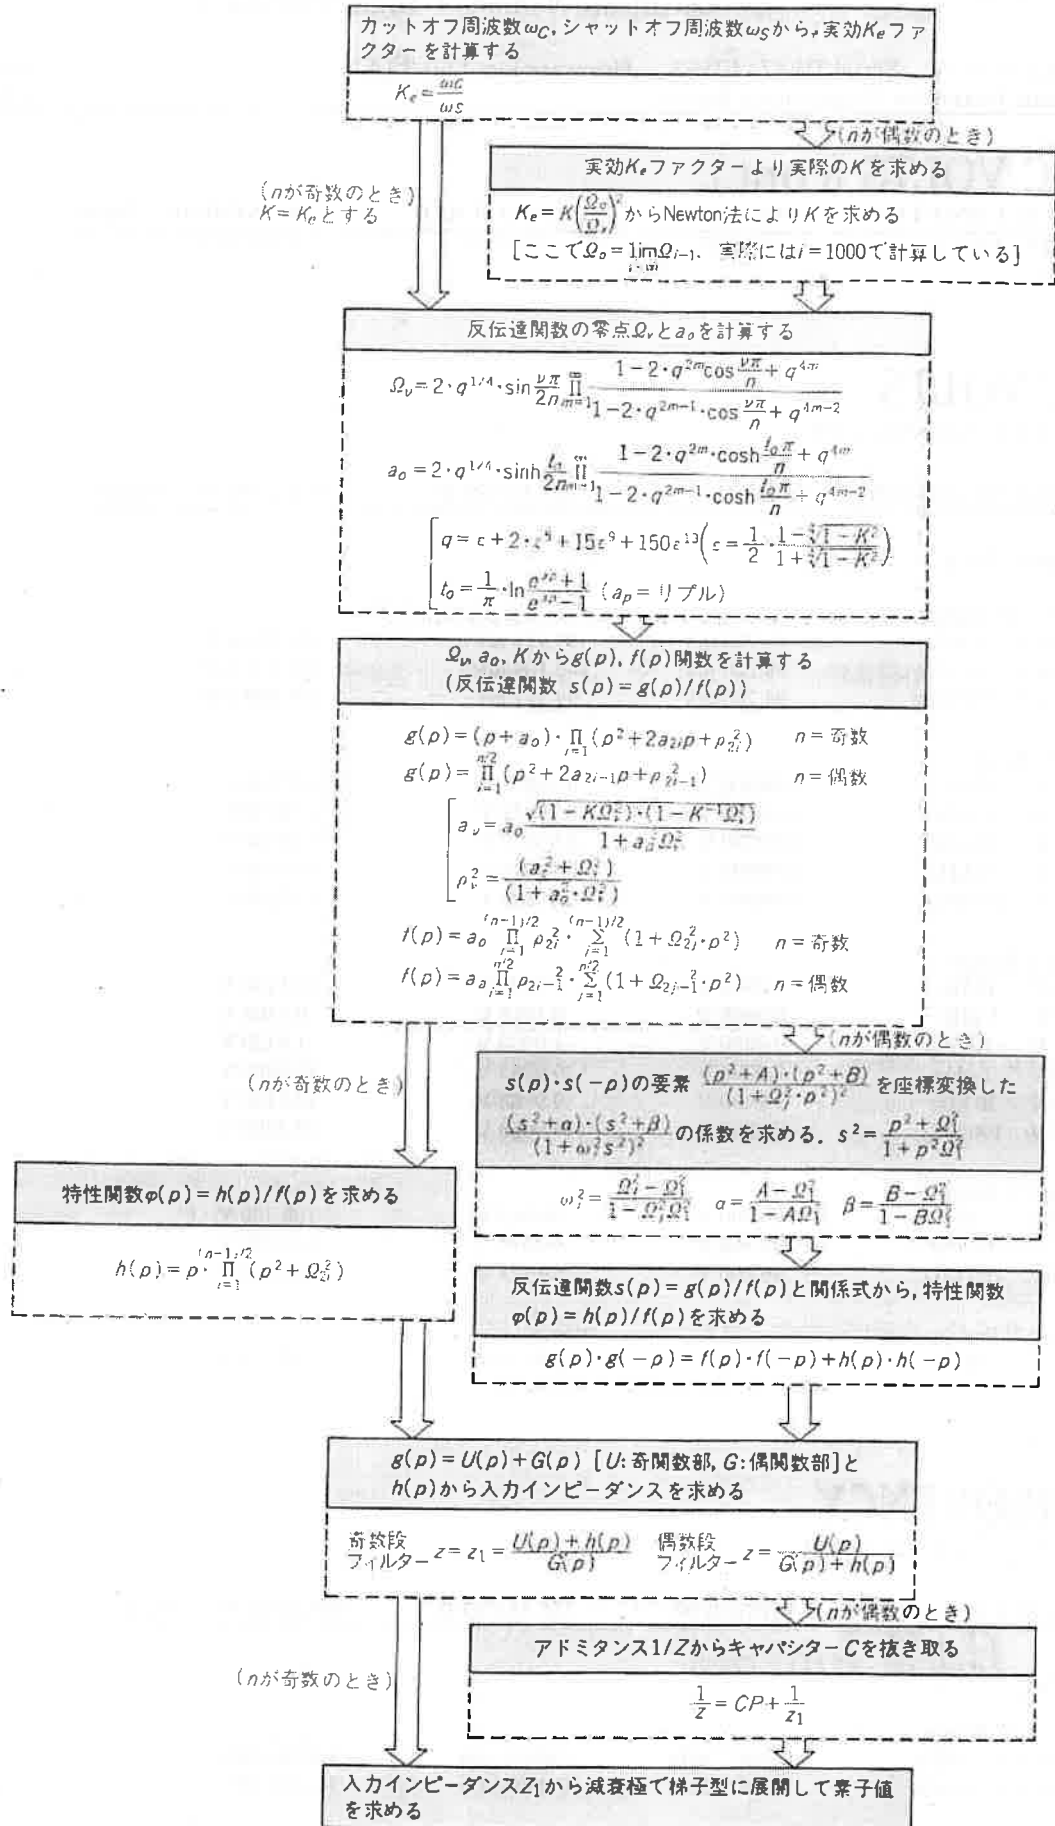 カットオフ周波数ω_C, シャットオフ周波数ω_Sから, 実効K_eファ
クターを計算する
K_e = ω_C/ω_S
(nが偶数のとき)
(nが奇数のとき)
K = K_eとする
実効K_eファクターより実際のKを求める
K_e = K(Ω_0/Ω_ν)^2からNewton法によりKを求める
[ここでΩ_0 = lim Ω_{i-1}, 実際にはi = 1000で計算している]
反伝達関数の零点Ω_νとa_0を計算する
Ω_ν = 2・q^{1/4}・sin νπ/2n ∏_{m=1}^{∞} (1 - 2・q^{2m} cos νπ/n + q^{4m})/(1 - 2・q^{2m-1}・cos νπ/n + q^{4m-2})
a_0 = 2・q^{1/4}・sinh t_0/2n ∏_{m=1}^{∞} (1 - 2・q^{2m}・cosh t_0π/n + q^{4m})/(1 - 2・q^{2m-1}・cosh t_0π/n + q^{4m-2})
q = ε + 2・ε^5 + 15ε^9 + 150ε^{13} (ε = 1/2・(1 - ∜(1 - K^2))/(1 + ∜(1 - K^2)))
t_0 = 1/π・ln (e^{ap} + 1)/(e^{ap} - 1) (a_p = リプル)
Ω_ν, a_0, Kからg(p), f(p)関数を計算する
(反伝達関数 s(p) = g(p)/f(p))
g(p) = (p + a_0)・∏_{i=1} (p^2 + 2a_{2i}p + ρ_{2i}^2) n = 奇数
g(p) = ∏_{i=1}^{n/2} (p^2 + 2a_{2i-1}p + ρ_{2i-1}^2) n = 偶数
a_ν = a_0 √((1 - KΩ_ν^2)・(1 - K^{-1}Ω_ν^2))/(1 + a_0^2Ω_ν^2)
ρ_ν^2 = (a_0^2 + Ω_ν^2)/(1 + a_0^2・Ω_ν^2)
f(p) = a_0 ∏_{i=1}^{(n-1)/2} ρ_{2i}^2・∑_{j=1}^{(n-1)/2} (1 + Ω_{2j}^2・p^2) n = 奇数
f(p) = a_a ∏_{i=1}^{n/2} ρ_{2i-1}^2・∑_{j=1}^{n/2} (1 + Ω_{2j-1}^2・p^2) n = 偶数
(nが偶数のとき)
(nが奇数のとき)
s(p)・s(-p)の要素 (p^2 + A)・(p^2 + B)/(1 + Ω_j^2・p^2)^2 を座標変換した
(s^2 + α)・(s^2 + β)/(1 + ω_j^2 s^2)^2 の係数を求める. s^2 = (p^2 + Ω_1^2)/(1 + p^2Ω_1^2)
ω_j^2 = (Ω_j^2 - Ω_1^2)/(1 - Ω_j^2Ω_1^2) α = (A - Ω_1^2)/(1 - AΩ_1^2) β = (B - Ω_1^2)/(1 - BΩ_1^2)
特性関数φ(p) = h(p)/f(p)を求める
h(p) = p・∏_{i=1}^{(n-1)/2} (p^2 + Ω_{2i}^2)
反伝達関数s(p) = g(p)/f(p)と関係式から, 特性関数
φ(p) = h(p)/f(p)を求める
g(p)・g(-p) = f(p)・f(-p) + h(p)・h(-p)
g(p) = U(p) + G(p) [U: 奇関数部, G: 偶関数部]と
h(p)から入力インピーダンスを求める
奇数段フィルター z = z_1 = (U(p) + h(p))/G(p) 偶数段フィルター z = U(p)/(G(p) + h(p))
(nが偶数のとき)
(nが奇数のとき)
アドミタンス1/ZからキャパシターCを抜き取る
1/z = CP + 1/z_1
入力インピーダンスZ_1から減衰極で梯子型に展開して素子値
を求める